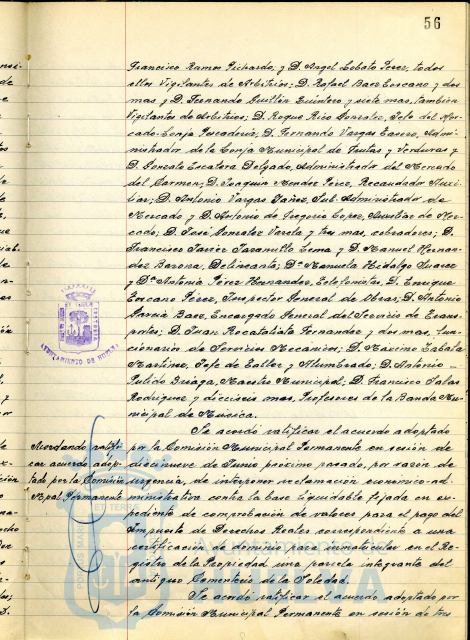 56
Francisco Ramos Pichardo, y D. Angel Lobato Perez, todos
ellos Vigilantes de Arbitrios; D. Rafael Baez Lozcano y dos
mas y D. Fernando Guillén Quintero y siete mas, también
Vigilantes de Arbitrios; D. Roque Rico Gonzalez, Jefe del Mer-
cado-Lonja Pescadería; D. Fernando Vargas Easero, Admi-
nistrador de la Lonja Municipal de Frutas y Verduras y
D. Gonzalo Escalera Delgado, Administrador del Mercado
del Carmen; D. Joaquin Mendez Perez, Recaudador Auxi-
liar; D. Antonio Vargas Yañez, Sub-Administrador de
Mercado y D. Antonio de Gregorio Lopez, Auxiliar de Mer-
cado; D. José Gonzalez Varela y tres mas, cobradores; D.
Francisco Javier Jaramillo Lema y D. Manuel Hernan-
dez Barona, Delineante; Dª Manuela Hidalgo Suarez
y Dª Antonia Pérez Hernandez, Telefonistas, D. Enrique
Lozcano Pérez, Inspector General de Obras; D. Antonio
Garcia Baez, Encargado General del Servicio de Trans-
portes; D. Juan Rocatallata Fernandez y dos mas, fun-
cionarios de Servicios Mecánicos; D. Maximo Zabala
Martinez, Jefe de Taller y Alumbrado; D. Antonio
Pulido Maestro Municipal; D. Francisco Salas
Rodriguez y dieciseis mas, Profesores de la Banda Mu-
nicipal de Musica.
AYUNTAMIENTO DE HUELVA
Se acordó ratificar el acuerdo adoptado
Acordando ratifi- por la Comisión Municipal Permanente en sesión de
car acuerdo adop- diecinueve de Junio próximo pasado, por razón de
tado por la Comisión urgencia, de interponer reclamación económico-ad-
Mpal. Permanente ministrativa contra la base liquidable fijada en ex-
pediente de comprobación de valores para el pago del
Impuesto de Derechos Reales correspondiente a una
certificación de dominio para inmatricular en el Re-
gistro de la Propiedad una parcela integrante del
antiguo Cementerio de la Soledad.
Se acordó ratificar el acuerdo adoptado por
la Comisión Municipal Permanente en sesión de tres
Ayuntamiento de